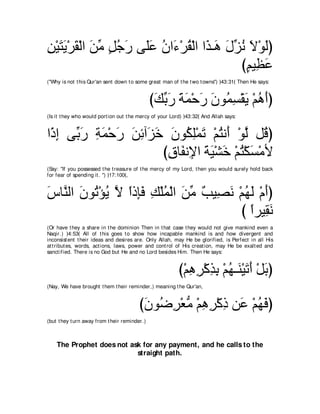 (لَوْلاَ نُزِّلَ هَـذَا الْقُرْءَانُ عَلَى رَجُلٍ مِّنَ الْقَرْيَتَيْنِ
عَظِيمٍ)
("Why is not this Qur'an sent down to some great man of the two towns'') ﴿43:31﴾ Then He says:
(أَهُمْ يَقْسِمُونَ رَحْمَةَ رَبِّكَ)
(Is it they who would portion out the mercy of your Lord) ﴿43:32﴾ And Allah says:
(قُل لَّوْ أَنتُمْ تَمْلِكُونَ خَزَآئِنَ رَحْمَةِ رَبِّى إِذًا
لأمْسَكْتُمْ خَشْيَةَ الإِنفَاقِ)
(Say: "If you possessed the treasure of the mercy of my Lord, then you would surely hold back
for fear of spending it.'') (17:100),
(أَمْ لَهُمْ نَصِيبٌ مِّنَ الْمُلْكِ فَإِذاً لاَّ يُؤْتُونَ النَّاسَ
نَقِيراً )
(Or have they a share in the dominion Then in that case they would not give mankind even a
Naqir.) ﴿4:53﴾( All of this goes to show how incapable mankind is and how divergent and
inconsistent their ideas and desires are. Only Allah, may He be glorified, is Perfect in all His
attributes, words, actions, laws, power and control of His creation, may He be exalted and
sanctified. There is no God but He and no Lord besides Him. Then He says:
(بَلْ أَتَيْنَـهُمْ بِذِكْرِهِمْ)
(Nay, We have brought them their reminder,) meaning the Qur'an,
(فَهُمْ عَن ذِكْرِهِمْ مُّعْرِضُونَ)
(but they turn away from their reminder.)
The Prophet does not ask for any payment, and he calls to the
straight path.